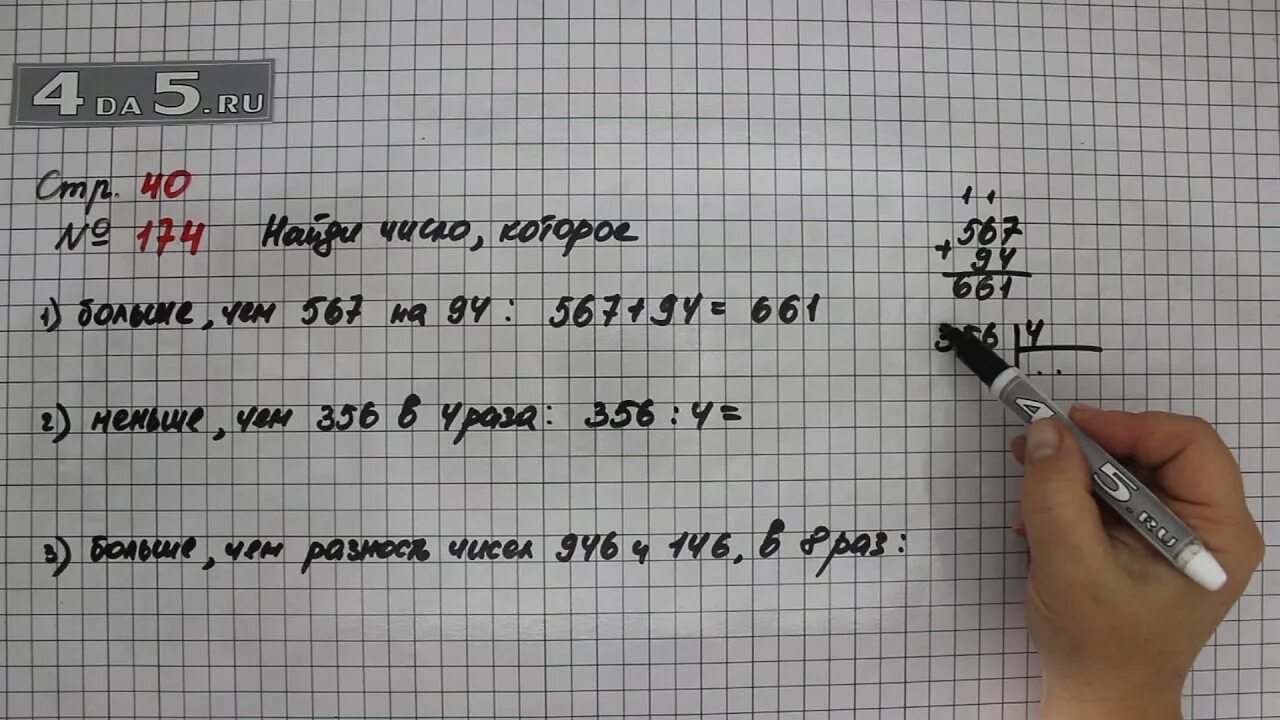 4DA5.RU
Стр. 40
№ 174 Найди число, которое
1) больше, чем 567 на 94: 567+94= 661
2) меньше, чем 356 в 4 раза: 356:4=
3) больше, чем разность чисел 946 и 146, в 8 раз:
11
567
+ 94
661
356 4
..
45.RU